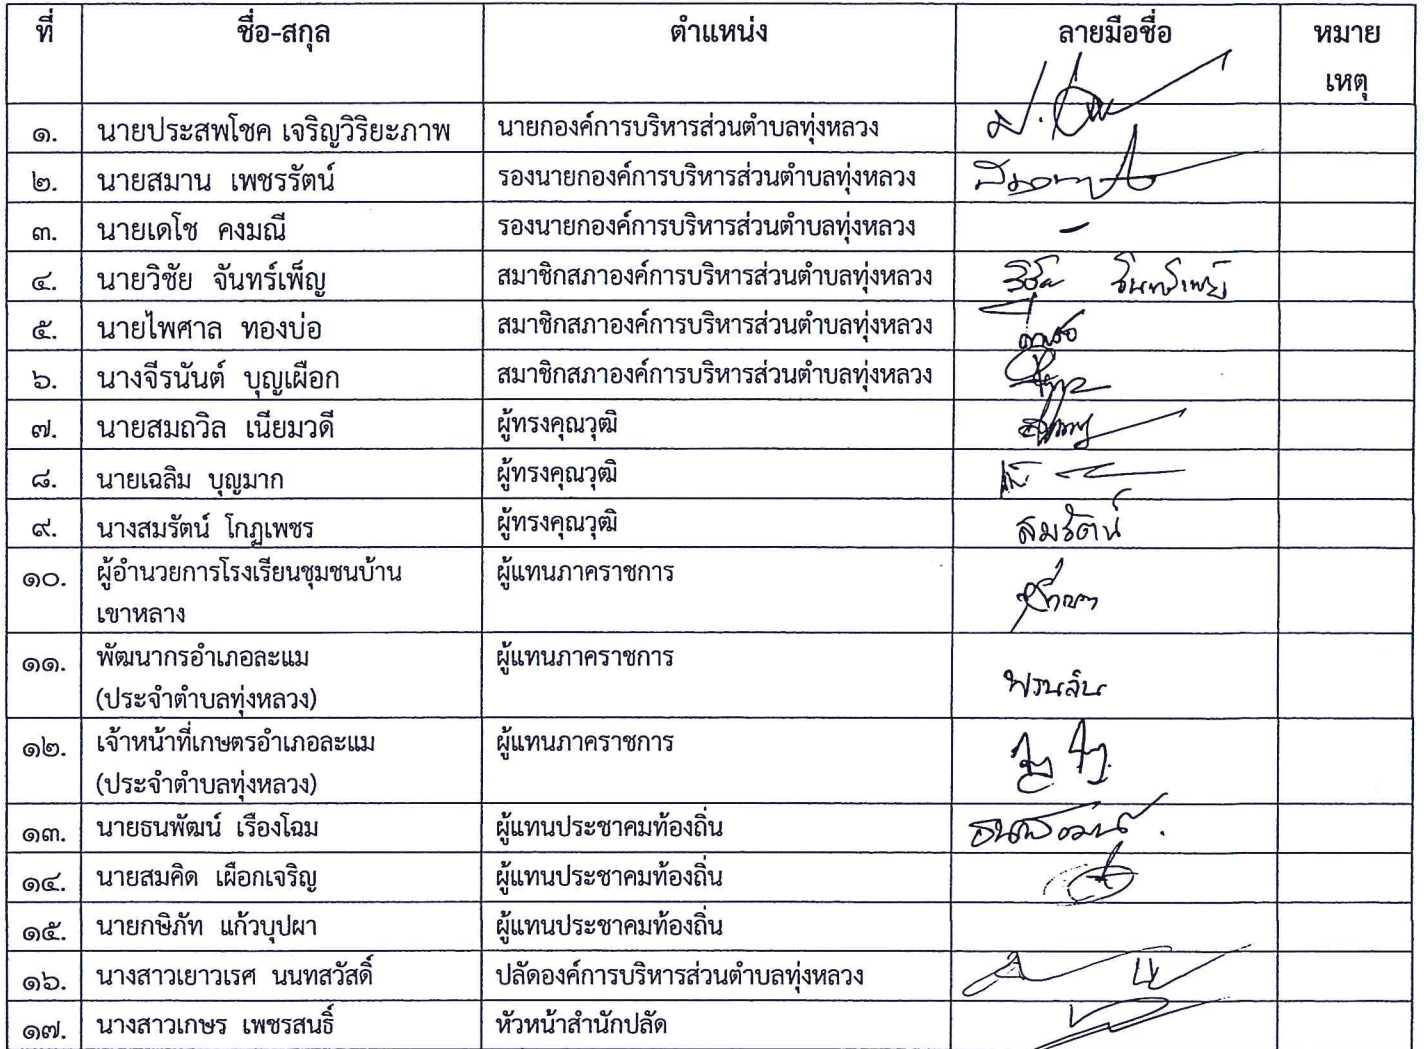 ที่ ชื่อ-สกุล ตำแหน่ง ลายมือชื่อ หมาย
เหตุ
๑. นายประสพโชค เจริญวิริยะภาพ นายกองค์การบริหารส่วนตำบลทุ่งหลวง
๒. นายสมาน เพชรรัตน์ รองนายกองค์การบริหารส่วนตำบลทุ่งหลวง
๓. นายเดโช คงมณี รองนายกองค์การบริหารส่วนตำบลทุ่งหลวง -
๔. นายวิชัย จันทร์เพ็ญ สมาชิกสภาองค์การบริหารส่วนตำบลทุ่งหลวง วิชัย จันทร์เพ็ญ
๕. นายไพศาล ทองบ่อ สมาชิกสภาองค์การบริหารส่วนตำบลทุ่งหลวง
๖. นางจีรนันต์ บุญเผือก สมาชิกสภาองค์การบริหารส่วนตำบลทุ่งหลวง
๗. นายสมถวิล เนียมวดี ผู้ทรงคุณวุฒิ
๘. นายเฉลิม บุญมาก ผู้ทรงคุณวุฒิ
๙. นางสมรัตน์ โกฎเพชร ผู้ทรงคุณวุฒิ สมรัตน์
๑๐. ผู้อำนวยการโรงเรียนชุมชนบ้าน ผู้แทนภาคราชการ
เขาหลาง
๑๑. พัฒนากรอำเภอละแม ผู้แทนภาคราชการ
(ประจำตำบลทุ่งหลวง)
๑๒. เจ้าหน้าที่เกษตรอำเภอละแม ผู้แทนภาคราชการ
(ประจำตำบลทุ่งหลวง)
๑๓. นายธนพัฒน์ เรืองโฉม ผู้แทนประชาคมท้องถิ่น ธนพัฒน์
๑๔. นายสมคิด เผือกเจริญ ผู้แทนประชาคมท้องถิ่น
๑๕. นายกษิภัท แก้วบุปผา ผู้แทนประชาคมท้องถิ่น
๑๖. นางสาวเยาวเรศ นนทสวัสดิ์ ปลัดองค์การบริหารส่วนตำบลทุ่งหลวง
๑๗. นางสาวเกษร เพชรสนธิ์ หัวหน้าสำนักปลัด